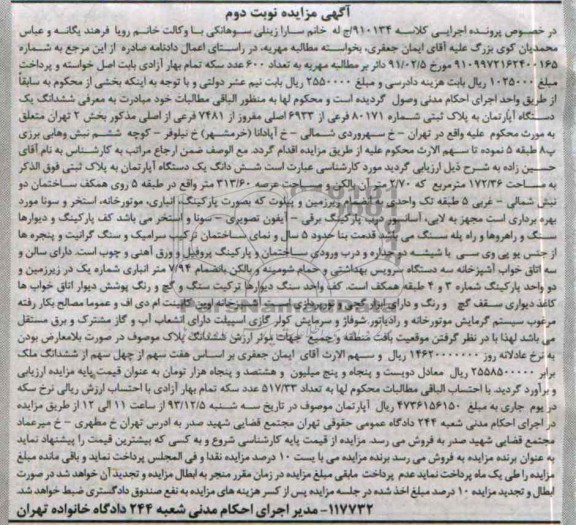 آگهی مزایده نوبت دوم
در خصوص پرونده اجرایی کلاسه ۹۱۰۱۳۴/ج له خانم سارا زینلی سوهانکی با وکالت خانم رویا فرهند یگانه و عباس
محمدیان کوی بزرگ علیه آقای ایمان جعفری، بخواسته مطالبه مهریه، در راستای اعمال دادنامه صادره از این مرجع به شماره
۹۱۰۹۹۷۲۱۶۲۴۰۰۱۶۵ مورخ ۹۱/۰۲/۵ دائر بر مطالبه مهریه به تعداد ۶۰۰ عدد سکه تمام بهار آزادی بابت اصل خواسته و پرداخت
مبلغ ۱۰۲۵۰۰۰ ریال بابت هزینه دادرسی و مبلغ ۲۵۵۰۰۰۰ ریال بابت نیم عشر دولتی و با توجه به اینکه بخشی از محکوم به سابقاً
از طریق واحد اجرای احکام مدنی وصول گردیده است و محکوم لها به منظور الباقی مطالبات خود مبادرت به معرفی ششدانگ یک
دستگاه آپارتمان به پلاک ثبتی شماره ۸۰۱۷۱ فرعی از ۶۹۳۳ اصلی مفروز از ۷۴۸۱ فرعی از اصلی مذکور بخش ۲ تهران متعلق
به مورث محکوم علیه واقع در تهران - خ سهروردی شمالی - خ آپادانا (خرمشهر) خ نیلوفر - کوچه ششم نبش وهابی برزی
پ۸ طبقه ۵ نموده تا سهم الارث محکوم علیه از طریق مزایده اقدام گردد. مع الوصف ضمن ارجاع مراتب به کارشناس به نام آقای
حسین زاده به شرح ذیل ارزیابی گردید مورد کارشناسی عبارت است شش دانگ یک دستگاه آپارتمان به پلاک ثبتی فوق الذکر
به مساحت ۱۷۲/۳۶ مترمربع که ۲/۷۰ متر آن بالکن و به مساحت عرصه ۳۱۳/۶۰ متر واقع در طبقه ۵ روی همکف ساختمان دو
نبش شمالی - غربی ۵ طبقه تک واحدی به انضمام زیرزمین و پیلوت که بصورت پارکینگ، انباری، موتورخانه، استخر و سونا مورد
بهره برداری است مجهز به لابی، آسانسور درب پارکینگ برقی - آیفون تصویری - سونا و استخر می باشد کف پارکینگ و دیوارها
سنگ و راهروها و راه پله سنگ می باشد. قدمت بنا حدود ۵ سال و نمای ساختمان ترکیب سرامیک و سنگ گرانیت و پنجره ها
از جنس یو پی وی سی با شیشه دو جداره و درب ورودی ساختمان و پارکینگ پروفیل و ورق آهنی و چوب است. دارای سالن و
سه اتاق خواب آشپزخانه سه دستگاه سرویس بهداشتی و حمام شومینه و بالکن بانضمام ۷/۹۴ متر انباری شماره یک در زیرزمین و
دو واحد پارکینگ شماره ۳ و ۴ طبقه همکف است. کف واحد سنگ دیوارها ترکیت سنگ و گچ و رنگ پوشش دیوار اتاق خواب ها
کاغذ دیواری سقف گچ و رنگ و دارای ابزار گچی و نورپردازی است آشپزخانه اوپن کابینت ام دی اف و عموما مصالح بکار رفته
مرغوب سیستم گرمایش موتورخانه و رادیاتور شوفاژ و سرمایش کولر گازی اسپیلت دارای انشعاب آب و گاز مشترک و برق مستقل
می باشد لهذا با در نظر گرفتن موقعیت بافت منطقه و جمیع جهات موثر ارزش ششدانگ پلاک موصوف در صورت بلامعارض بودن
به نرخ عادلانه روز ۱۴۶۲۰۰۰۰۰۰۰ ریال و سهم الارث آقای ایمان جعفری بر اساس هفت سهم از چهل سهم از ششدانگ ملک
برابر ۲۵۵۸۵۰۰۰۰۰ ریال معادل دویست و پنجاه و پنج میلیون و هشتصد و پنجاه هزار تومان به عنوان قیمت پایه مزایده ارزیابی
و برآورد گردید. با احتساب الباقی مطالبات محکوم لها به تعداد ۵۱۷/۳۳ عدد سکه تمام بهار آزادی با احتساب ارزش ریالی نرخ سکه
در یوم جاری به مبلغ ۴۷۳۶۱۵۶۱۵۰ ریال آپارتمان موصوف در تاریخ سه شنبه ۹۳/۱۲/۵ از ساعت ۱۱ الی ۱۲ از طریق مزایده
در اجرای احکام مدنی شعبه ۲۴۴ دادگاه عمومی حقوقی تهران مجتمع قضایی شهید صدر به ادرس تهران خ مطهری - خ میرعماد
مجتمع قضایی شهید صدر به فروش می رسد. مزایده از قیمت پایه کارشناسی شروع و به کسی که بیشترین قیمت را پیشنهاد نماید
به عنوان برنده مزایده به فروش می رسد برنده مزایده می با پست ۱۰ درصد مزایده نقدا و فی المجلس پرداخت نماید و باقی مانده مبلغ
مزایده را طی یک ماه پرداخت نماید عدم پرداخت مابقی مبلغ مزایده در زمان مقرر منجر به ابطال مزایده و تجدید آن خواهد شد در صورت
ابطال و تجدید مزایده ۱۰ درصد مبلغ اخذ شده در جلسه مزایده پس از کسر هزینه های مزایده به نفع صندوق دادگستری ضبط خواهد شد.
۱۱۷۷۳۲- مدیر اجرای احکام مدنی شعبه ۲۴۴ دادگاه خانواده تهران